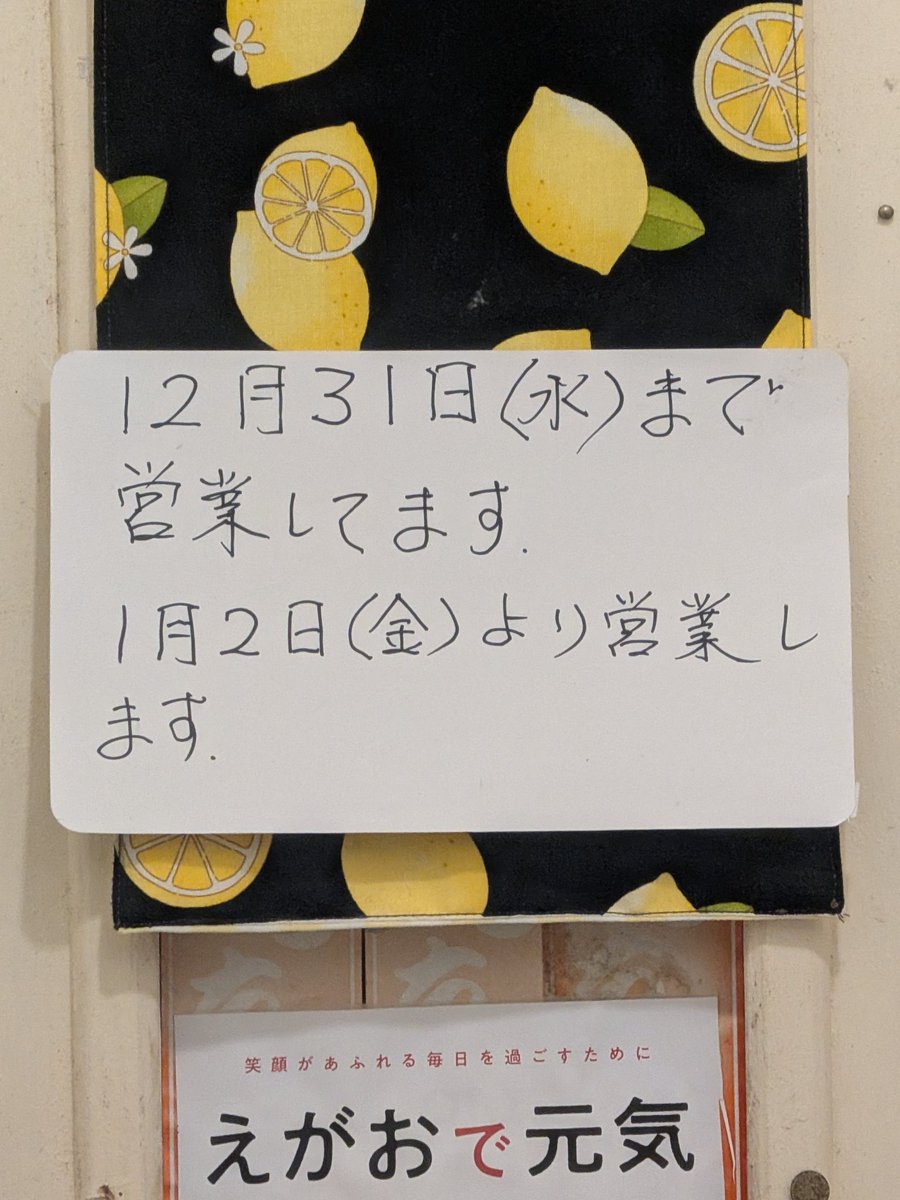 12月31日(水)まで
営業してます.
1月2日(金)より営業し
ます.
笑顔があふれる毎日を過ごすために
えがおで元気